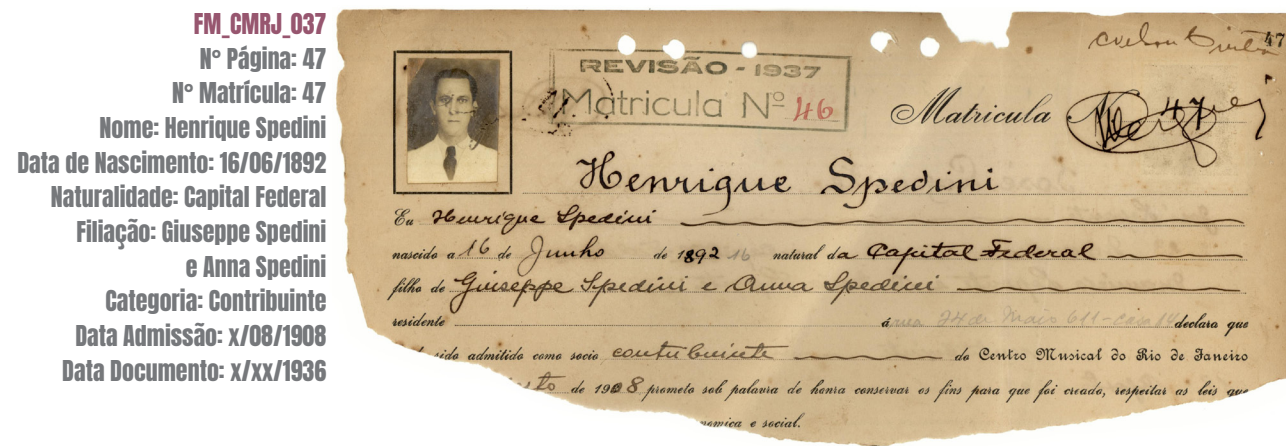 FM_CMRJ_037
Nº Página: 47
Nº Matrícula: 47
Nome: Henrique Spedini
Data de Nascimento: 16/06/1892
Naturalidade: Capital Federal
Filiação: Giuseppe Spedini
e Anna Spedini
Categoria: Contribuinte
Data Admissão: x/08/1908
Data Documento: x/xx/1936
47
REVISÃO - 1937
Matricula Nº 46
Matricula 47
Henrique Spedini
Eu Henrique Spedini
nascido a 16 de Junho de 1892 16 natural da Capital Federal
filho de Giuseppe Spedini e Anna Spedini
residente á rua 24 de Maio 611 - casa 14 declara que
sido admitido como socio contribuinte do Centro Musical do Rio de Janeiro
sto de 1908 prometo sob palavra de honra conservar os fins para que foi creado, respeitar as leis que
nomica e social.